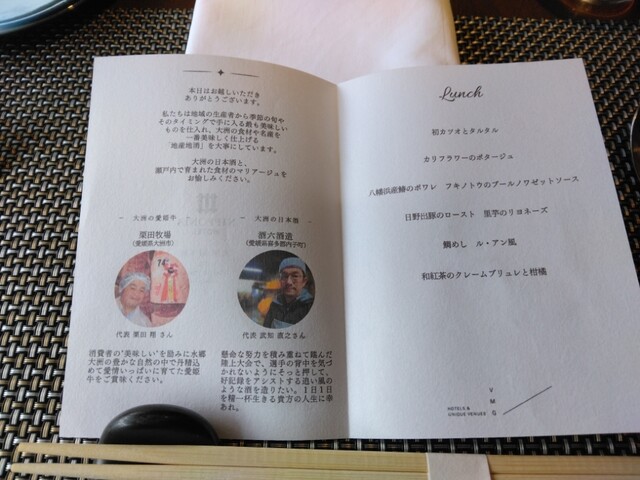 本日はお越しいただき
ありがとうございます。
私たちは地域の生産者から季節の旬や
そのタイミングで手に入る最も美味しい
ものを仕入れ、大洲の食材や名産を
一番美味しく仕上げる
「地産地消」を大事にしています。
大洲の日本酒と、
瀬戸内で育まれた食材のマリアージュを
お愉しみください。
大洲の愛姫牛
栗田牧場
(愛媛県大洲市)
代表 栗田 翔 さん
消費者の"美味しい"を励みに水郷
大洲の豊かな自然の中で丹精込
めて愛情いっぱいに育てた愛姫
牛をご賞味ください。
大洲の日本酒
酒六酒造
(愛媛県喜多郡内子町)
代表 武知 直之さん
懸命な努力を積み重ねて臨んだ
陸上大会で、選手の背中を気づ
かれないようにそっと押して、
好記録をアシストする追い風の
ような酒を造りたい。1日1日
を精一杯生きる貴方の人生に幸
あれ。
Lunch
初カツオとタルタル
カリフラワーのポタージュ
八幡浜産鰆のポワレ フキノトウのブールノワゼットソース
日野出豚のロースト 里芋のリヨネーズ
鯛めし ル・アン風
和紅茶のクレームブリュレと柑橘
HOTELS &
UNIQUE VENUES
V
M
G